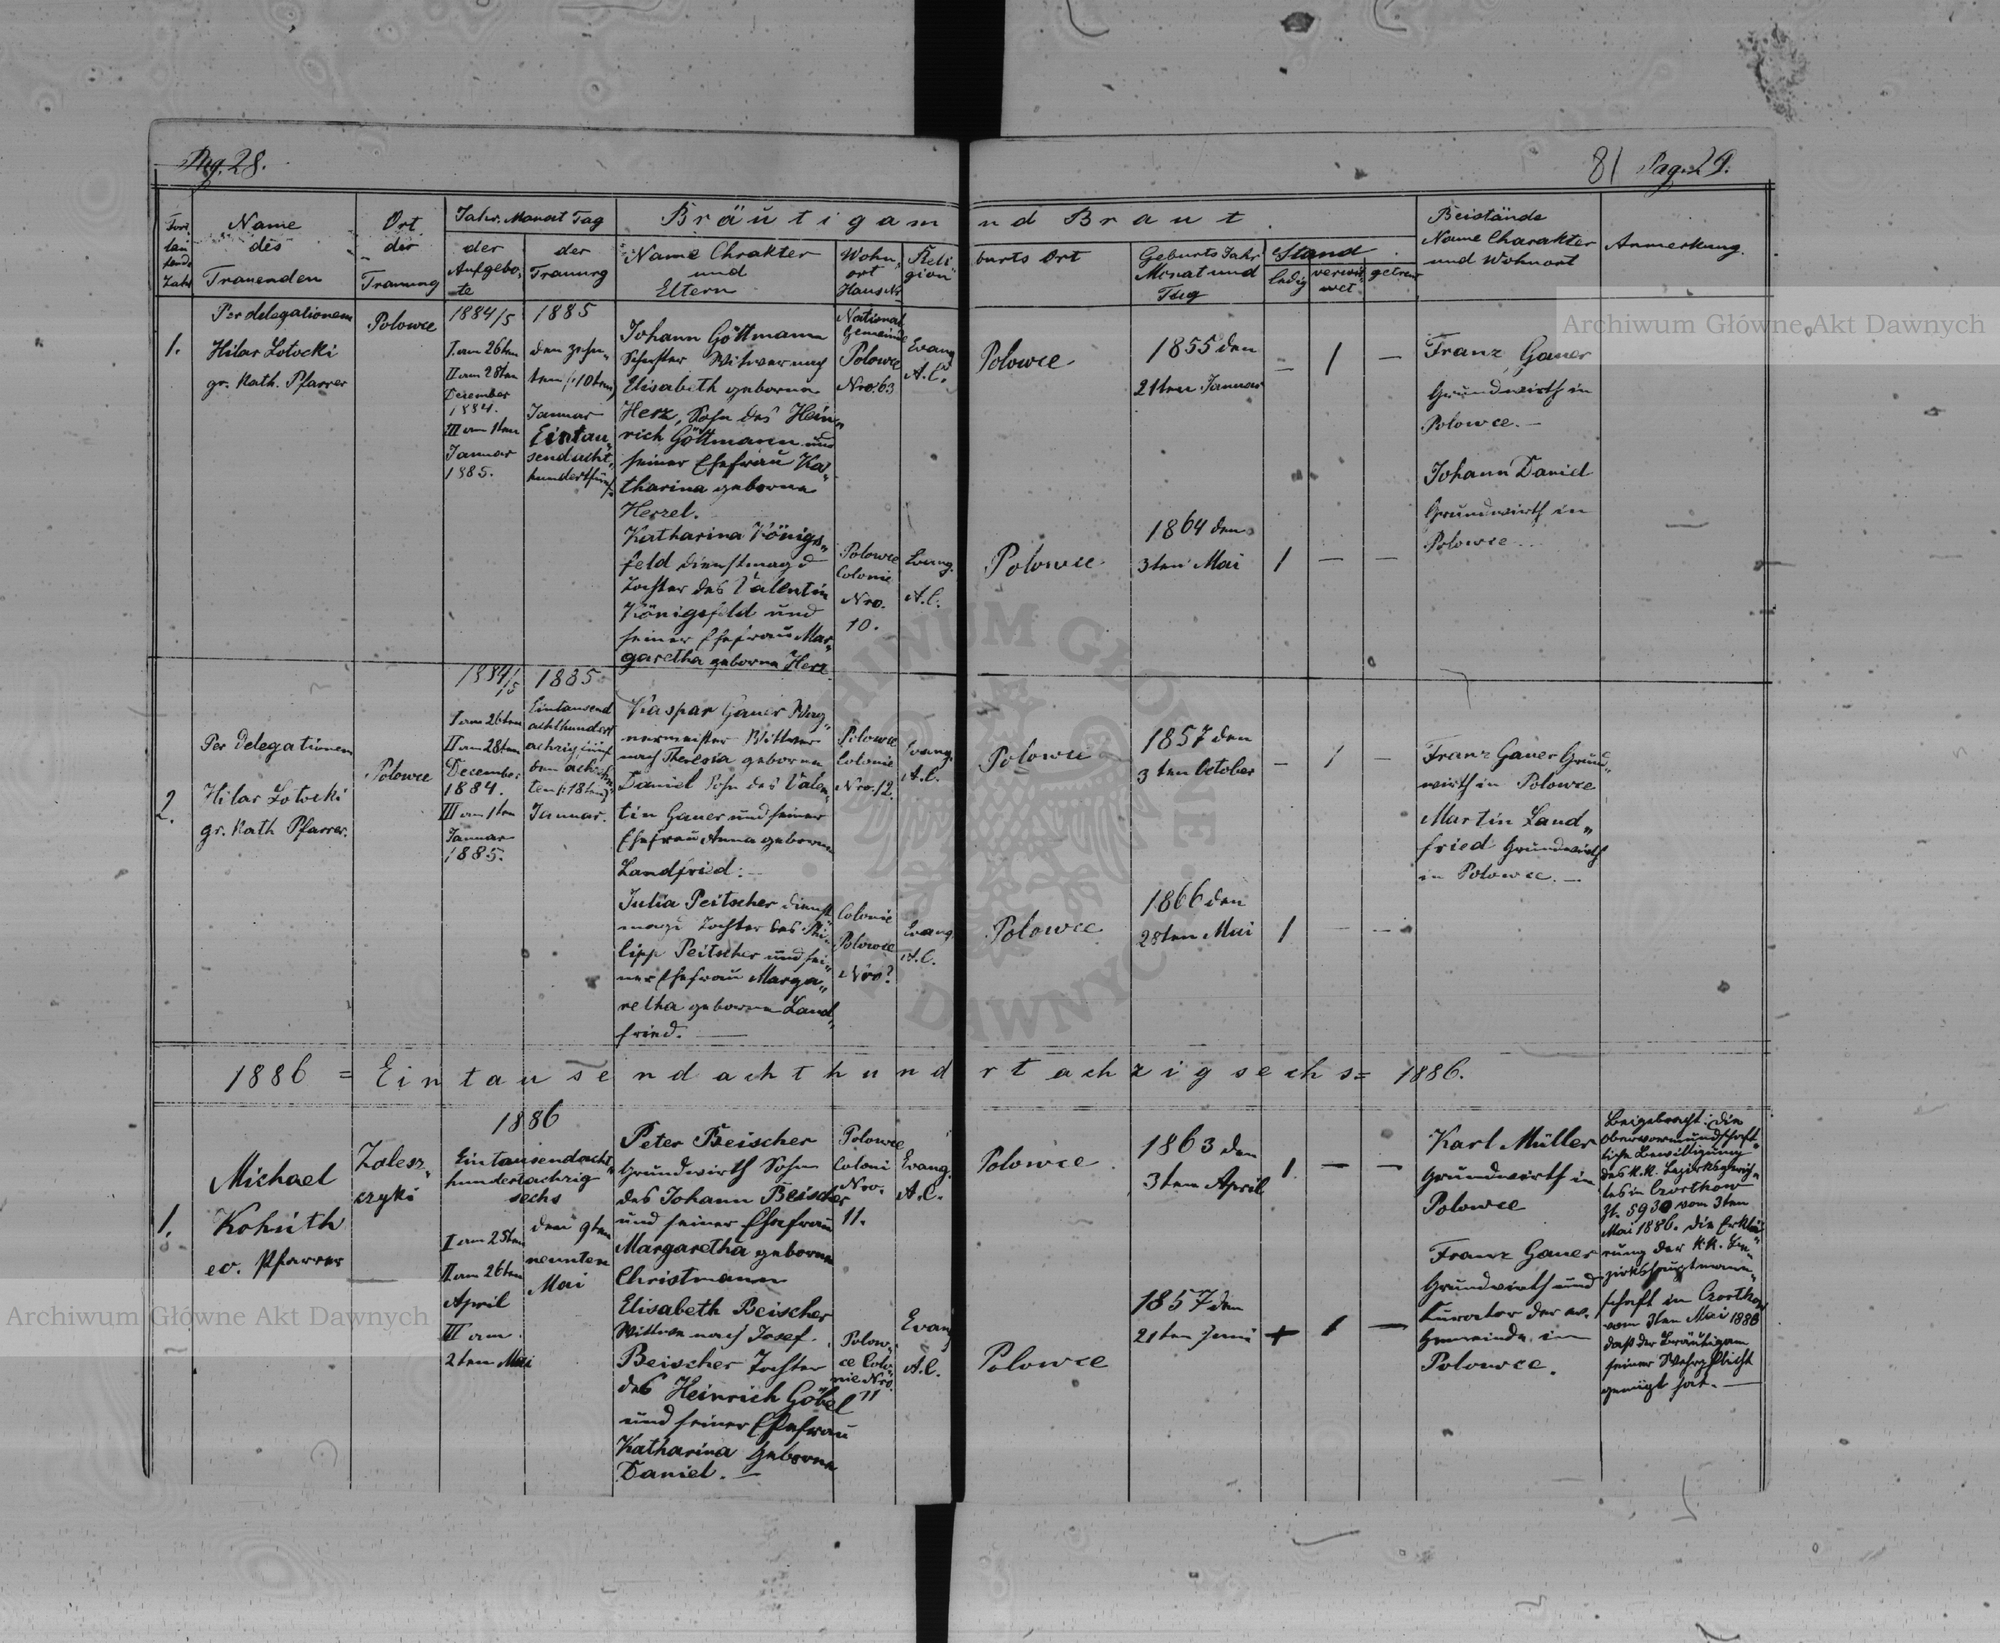 Pag. 28.
81 Pag. 29.
Fort
lau
fende
Zahl
Name
des
Trauenden
Ort
der
Trauung
Jahr. Monat Tag
der
Aufgebo-
te
der
Trauung
Bräutigam
nd Braut
Name Chrakter
und
Eltern
Wohn-
ort
Haus No
Reli
gion
burts Ort
Geburts Jahr
Monat und
Tag
Stand
ledig
verwit-
wet
getrennt
Beistände
Name Charakter
und Wohnort
Anmerkung.
1.
Per delegationem
Hilar Lotocki
gr. Kath. Pfarrer
Polowce
1884/5
I am 26ten
II am 28ten
December
1884.
III am 1ten
Januar
1885.
1885
den zehn-
ten /:10ten
Januar
Eintau-
sendacht-
hundertfünf
Johann Göttmann
Schuster Witwer nach
Elisabeth geborne
Herz, Sohn des Hein-
rich Göttmann und
seiner Ehefrau Ka-
tharina geborne
Herzel.
National
Gemeinde
Polowce
Nro 63
Evang
A.C.
Polowce
1855 den
21ten Januar
– 1 –
Franz Gauer
Grundwirth in
Polowce. –
Johann Daniel
Grundwirth in
Polowce
Katharina Königs-
feld Dienstmagd
Tochter des Valentin
Königsfeld und
seiner Ehefrau Mar-
garetha geborne Herz
Polowce
Colonie
Nro.
10.
Evang.
A.C.
Polowce
1864 den
3ten Mai
1 – –
2.
Per delegationem
Hilar Lotocki
gr. Kath Pfarrer.
Polowce
1884/5
I am 26ten
II am 28ten
December
1884.
III am 1ten
Januar
1885.
1885
Eintausend
achthundert
achzigfünf
den achtzehn
ten /:18ten:/
Januar.
Kaspar Gauer Wag-
nermeister Wittwer
nach Theresia geborne
Daniel Sohn des Valen-
tin Gauer und seiner
Ehefrau Anna geborne
Landfried. –
Polowce
Colonie
Nro. 12.
Evang.
A.C.
Polowce
1857 den
3ten October
– 1 –
Franz Gauer Grund-
wirth in Polowce
Martin Land-
fried Grundwirth
in Polowce. –
Julia Peitscher Dienst
magd Tochter des Phi-
lipp Peitscher und sei-
ner Ehefrau Marga-
retha geborne Land-
fried. –
Colonie
Polowce
Nro ?
Evang.
A.C.
Polowce
1866 den
28ten Mai
1 – –
1886 = Eintausendachthund
rtachzigsechs = 1886.
1.
Michael
Kohúth
ev. Pfarrer
Zalesz-
czyki
1886
Eintausendacht-
hundertachzig
sechs
I am 25ten
II am 26ten
April
III am
2ten Mai
den 9ten
neunten
Mai
Peter Beischer
Grundwirth Sohn
des Johann Beischer
und seiner Ehefrau
Margaretha geborne
Christmann
Polowce
Coloni
Nro.
11.
Evang.
A.C.
Polowce
1863 den
3ten April
1 – –
Karl Müller
Grundwirth in
Polowce
Franz Gauer
Grundwirth und
Kurator der ev.
Gemeinde in
Polowce.
Beigebracht: die
Obervormundschaft-
liche Bewilligung
des k.k. Bezirksgerich-
tes in Czortkow
Zl. 5930 vom 3ten
Mai 1886. die Erklä-
rung der k.k. Be-
zirkshauptmann-
schaft in Czortkow
vom 3ten Mai 1886
daß der Bräutigam
seiner Wehrpflicht
genügt hat. –
Elisabeth Beischer
Wittwe nach Josef
Beischer Tochter
des Heinrich Göbel
und seiner Ehefrau
Katharina geborne
Daniel. –
Polow-
ce Colo-
nie Nro.
11
Evang
A.C.
Polowce
1857 den
21ten Juni
+ 1 –
Archiwum Główne Akt Dawnych
Archiwum Główne Akt Dawnych
ARCHIWUM GŁÓWNE AKT DAWNYCH